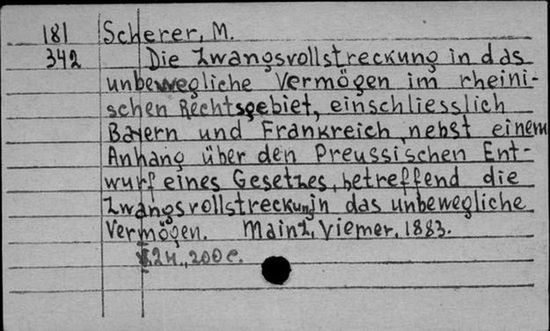 181 Scherer, M.
342 Die Zwangsvollstreckung in das
unbewegliche Vermögen im rheini-
schen Rechtsgebiet, einschliesslich
Bayern und Frankreich, nebst einem
Anhang über den Preussischen Ent-
wurf eines Gesetzes, betreffend die
Zwangsvollstreckung in das unbewegliche
Vermögen. Mainz, Viemer, 1883.
200 c.